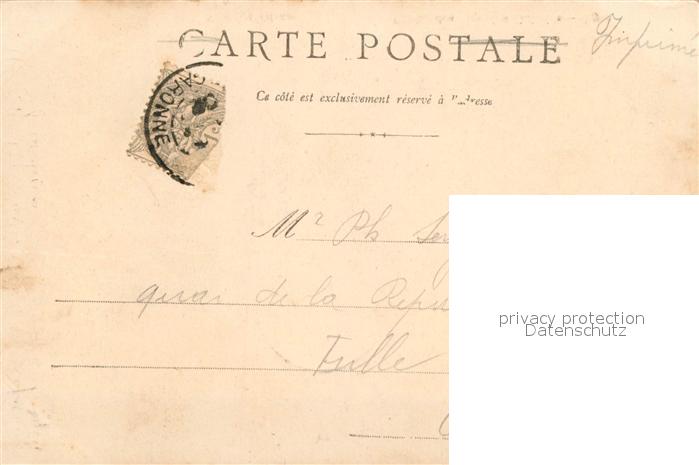 CARTE POSTALE
Imprimé
Ce côté est exclusivement réservé à
GARONNE
Mr Ph
quai de la
Tulle
privacy protection
Datenschutz